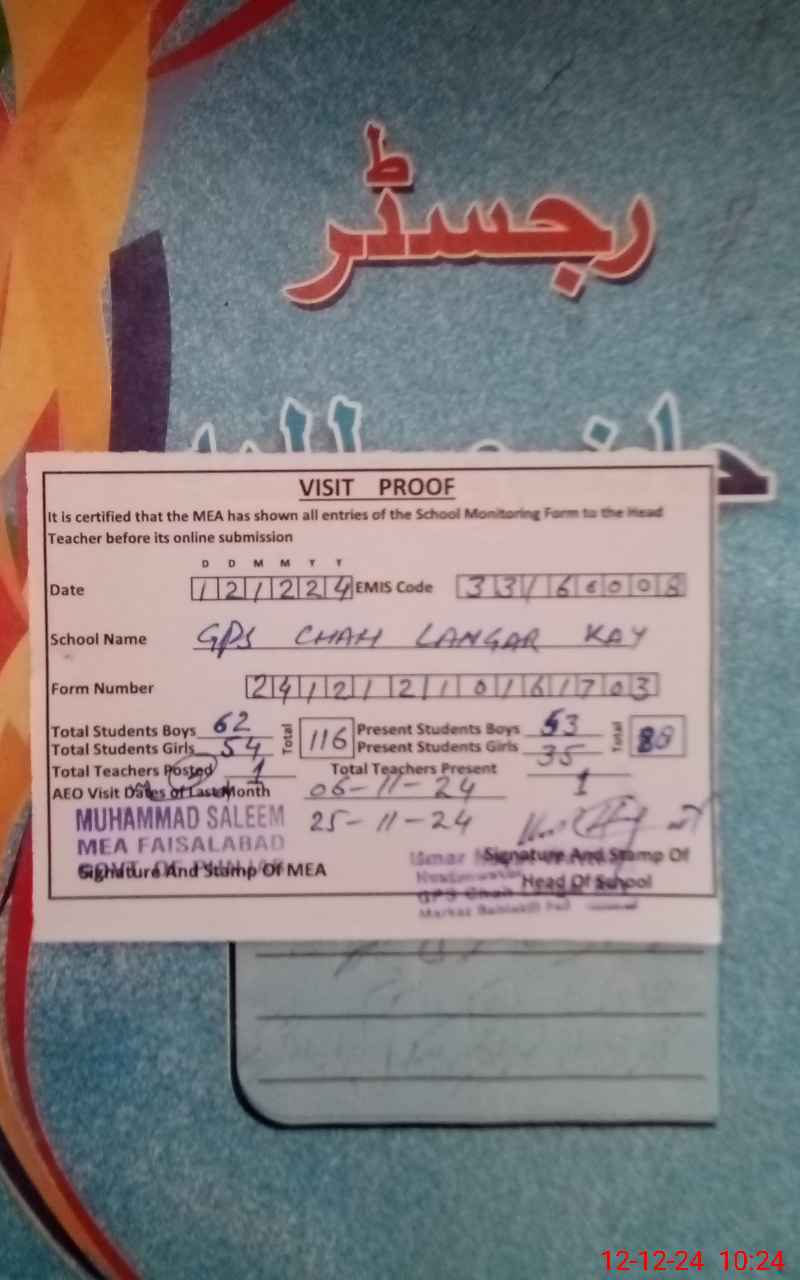 رجسٹر
VISIT PROOF
It is certified that the MEA has shown all entries of the School Monitoring Form to the Head
Teacher before its online submission
D D M M Y Y
Date 121224 EMIS Code 33166008
School Name GPS CHAH LANGAR KAY
Form Number 24121210161703
Total Students Boys 62 Total 116 Present Students Boys 53 Total 88
Total Students Girls 54 Present Students Girls 35
Total Teachers Posted 1 Total Teachers Present 1
AEO Visit Dates of Last Month 06-11-24
25-11-24
MUHAMMAD SALEEM
MEA FAISALABAD
GOVT. OF PUNJAB
Signature And Stamp Of MEA
Signature And Stamp Of
Head Of School
12-12-24 10:24